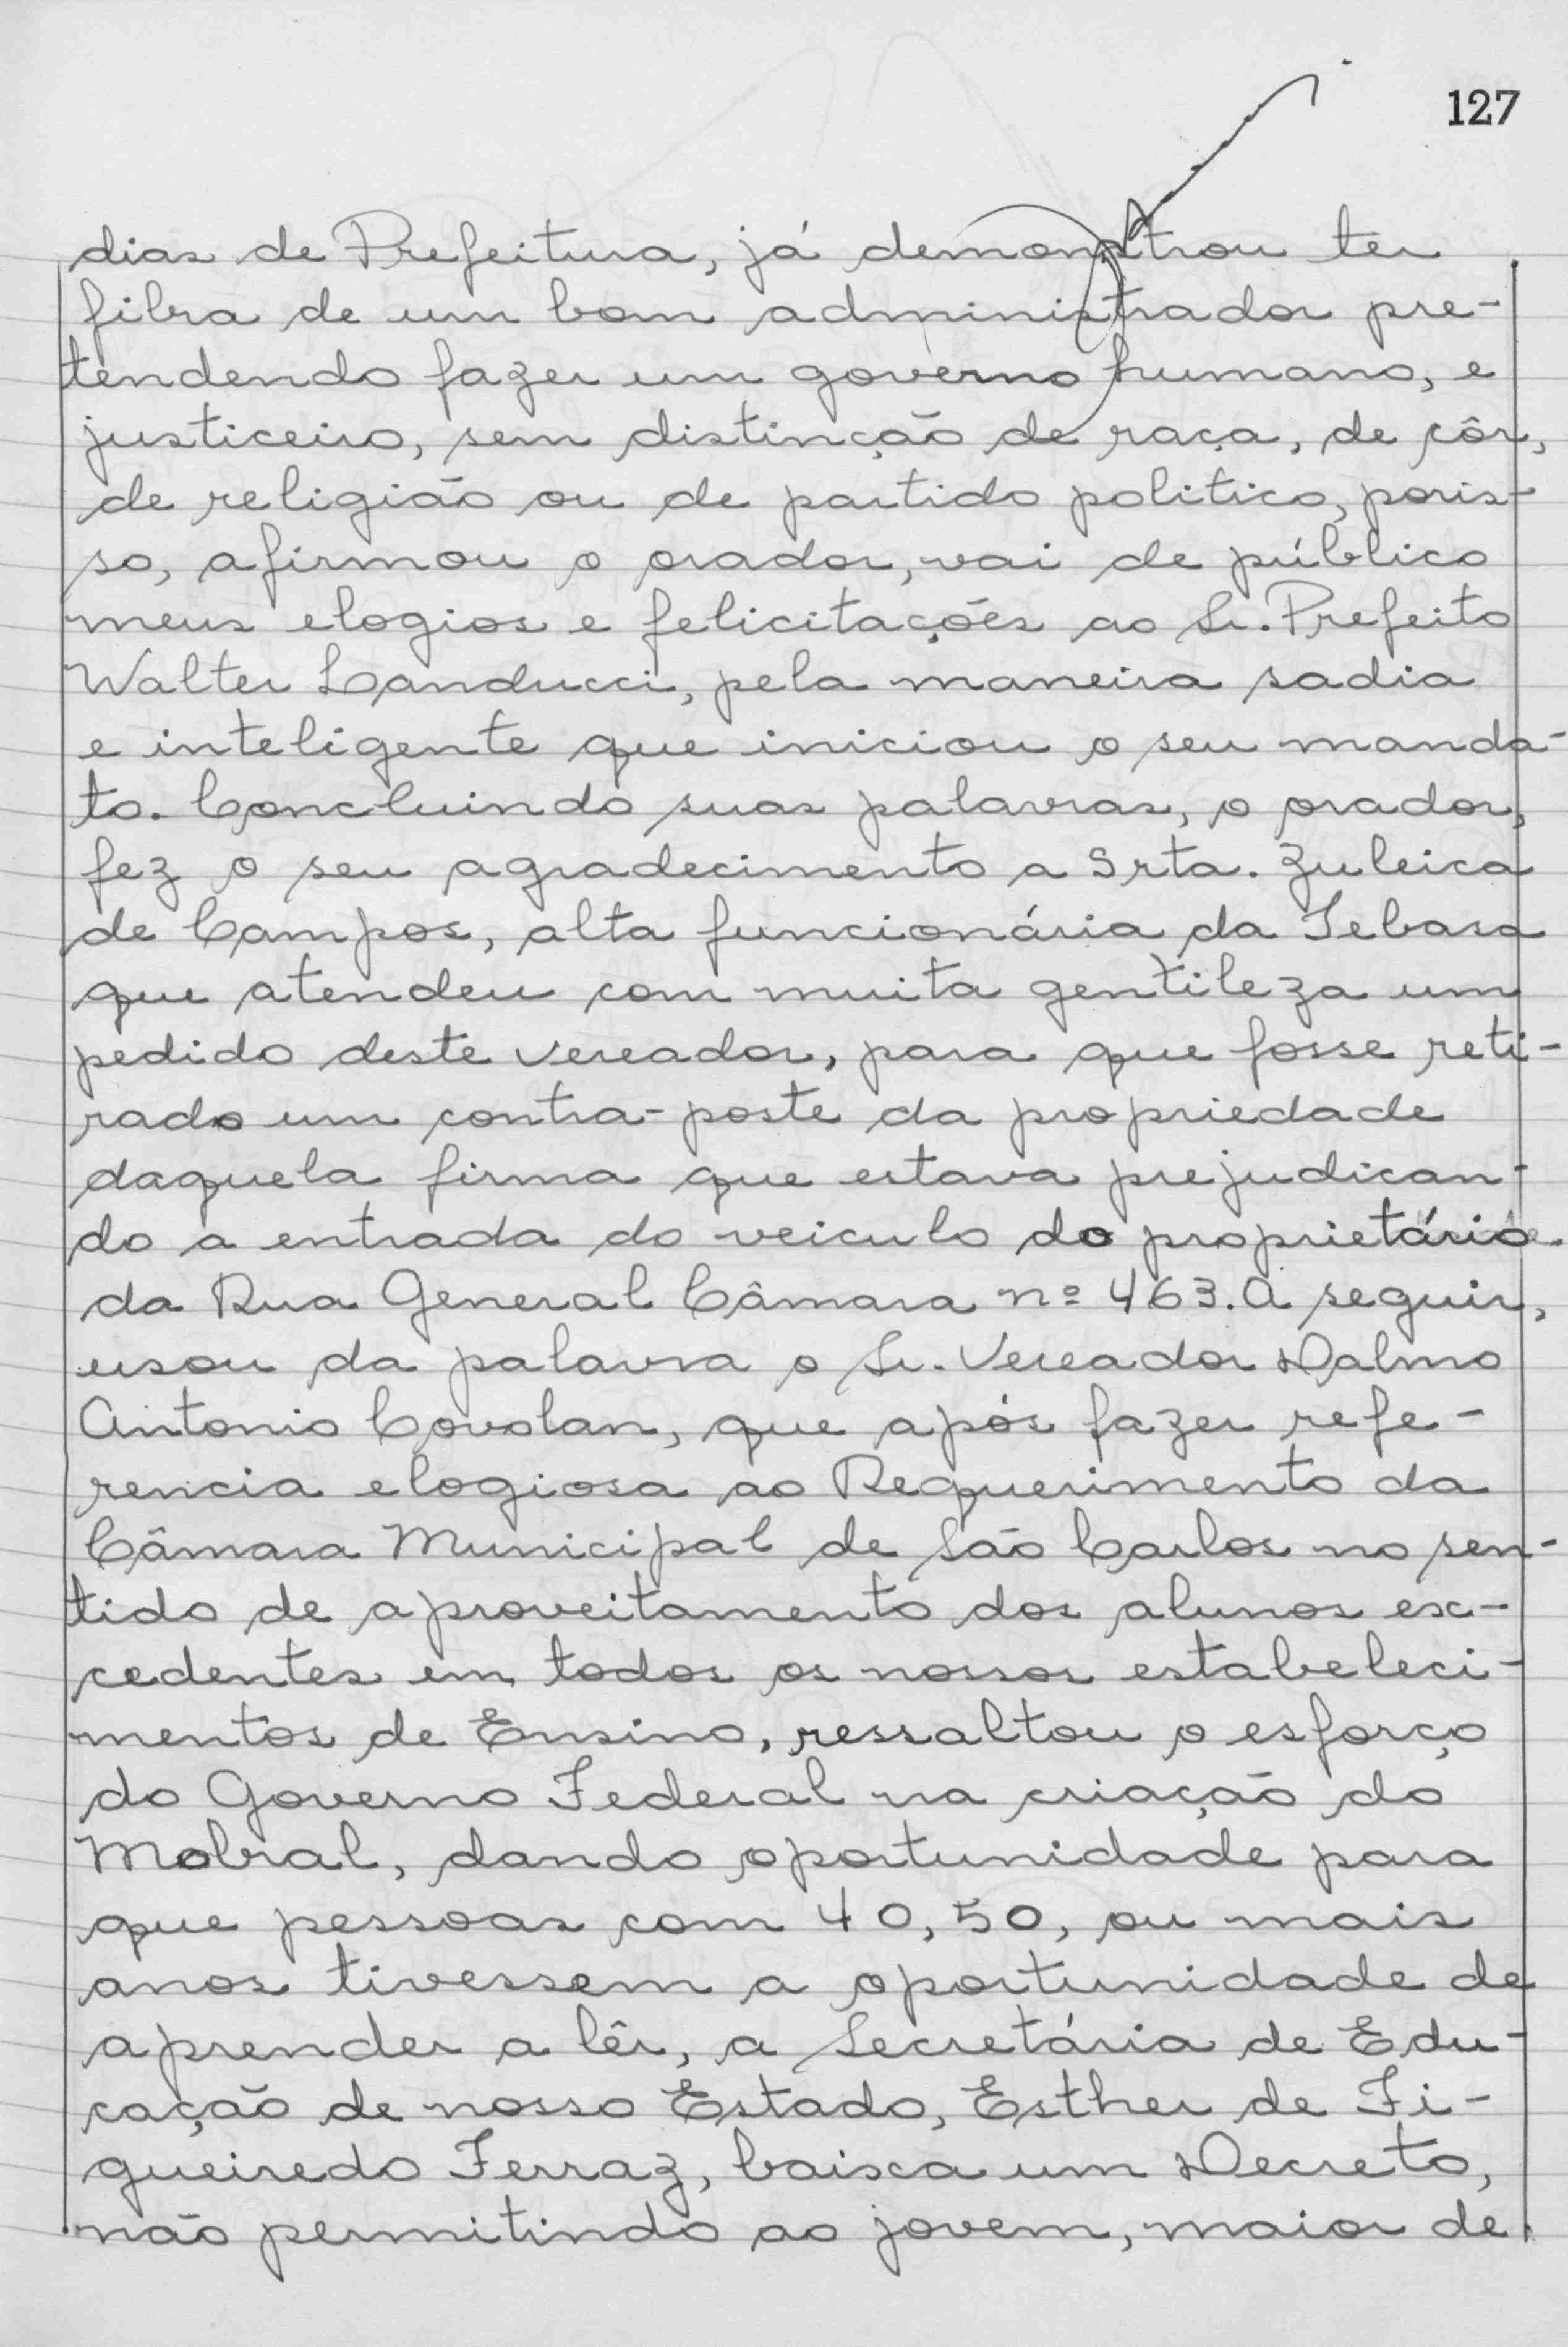 127
dias de Prefeitura, já demonstrou ter
fibra de um bom administrador pre-
tendendo fazer um governo humano, e
justiceiro, sem distinção de raça, de côr,
de religião ou de partido politico, poris-
so, afirmou o orador, vai de público
meus elogios e felicitações ao Sr. Prefeito
Walter Landucci, pela maneira sadia
e inteligente que iniciou o seu manda-
to. Concluindo suas palavras, o orador,
fez o seu agradecimento a Srta. Zuleica
de Campos, alta funcionária da Tebasa
que atendeu com muita gentileza um
pedido deste vereador, para que fosse reti-
rado um contra-poste da propriedade
daquela firma que estava prejudican-
do a entrada do veiculo do proprietário
da Rua General Câmara nº 463. A seguir,
usou da palavra o Sr. Vereador Dalmo
Antonio Covolan, que após fazer refe-
rencia elogiosa ao Requerimento da
Câmara Municipal de São Carlos no sen-
tido de aproveitamento dos alunos ex-
cedentes em todos os nossos estabeleci-
mentos de Ensino, ressaltou o esforço
do Governo Federal na criação do
Mobral, dando oportunidade para
que pessoas com 40, 50, ou mais
anos tivessem a oportunidade de
aprender a lêr, a Secretária de Edu-
cação de nosso Estado, Esther de Fi-
gueiredo Ferraz, baixa um Decreto,
não permitindo ao jovem, maior de